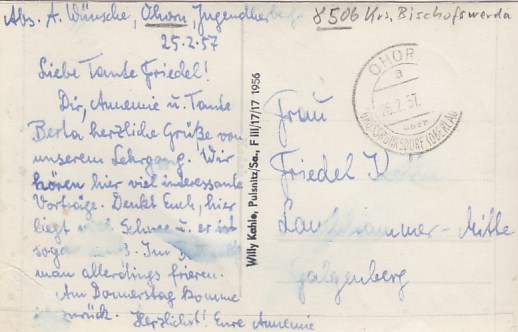 Abs. A. Wünsche, Ohorn, Jugendher
8506 Krs. Bischofswerda
25.2.57
Liebe Tante Friedel!
Dir, Annemie u. Tante
Berta herzliche Grüße von
unserem Lehrgang! Wir
hören hier viel interessante
Vorträge. Denkt Euch, hier
liegt viel Schnee u. er ist
sogar. Im
man allerdings frieren.
Am Donnerstag komme
zurück. Herzlichst! Eure Annemie
Willy Kahle, Pulsnitz/Sa., F III/17/17 1956
OHOR
a
26.2.57
über
Frau
Friedel
Lauchhammer-Mitte
Galgenberg